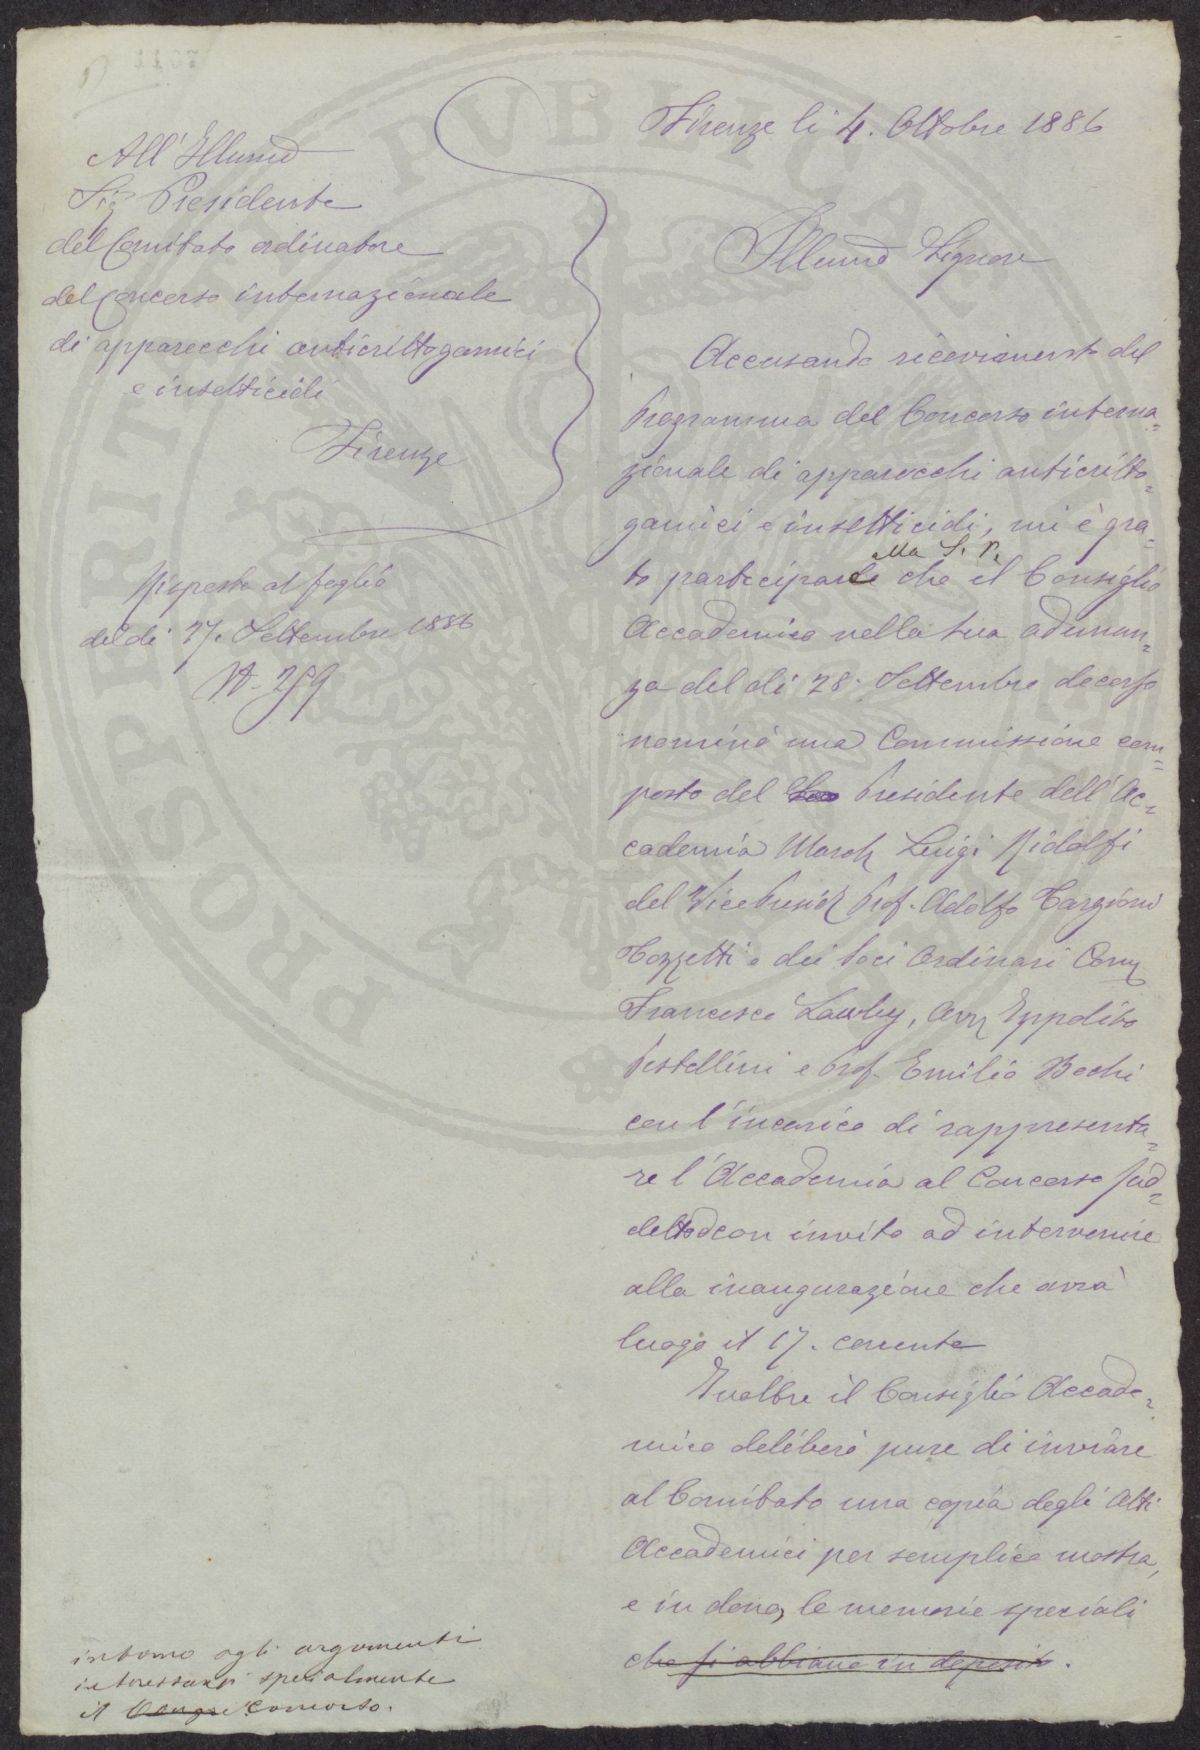 Firenze li 4. Ottobre 1886
All'Illumo
Sig Presidente
del Comitato ordinatore
del Concorso internazionale
di apparecchi anticrittogamici
e insetticidi
Firenze
Risposta al foglio
del di 27. Settembre 1886
N. 259
Illumo Signore
Accusando ricevimento del
Programma del Concorso interna=
zionale di apparecchi anticritto=
gamici e insetticidi, mi è gra=
alla S. V.
to partecipare che il Consiglio
Accademico nella sua adunan=
za del di 28. Settembre decorso
nominò una Commissione com=
posta del Presidente dell'Ac=
cademia March Luigi Ridolfi
del Vice Presid Prof. Adolfo Targioni
Tozzetti e dei Soci Ordinari Comm
Francesco Lawley, Avv Ippolito
Pestellini e Prof. Emilio Bechi
con l'incarico di rappresenta=
re l'Accademia al Concorso sud=
detto con invito ad intervenire
alla inaugurazione che avrà
luogo il 17. corrente
Inoltre il Consiglio Accade=
mico deliberò pure di inviare
al Comitato una copia degli Atti
Accademici per semplice mostra,
e in dono, le memorie speciali
che si abbiano in deposito.
intorno agli argomenti
interessanti specialmente
il Congre Concorso.
PROSPERITATI PUBLICAE